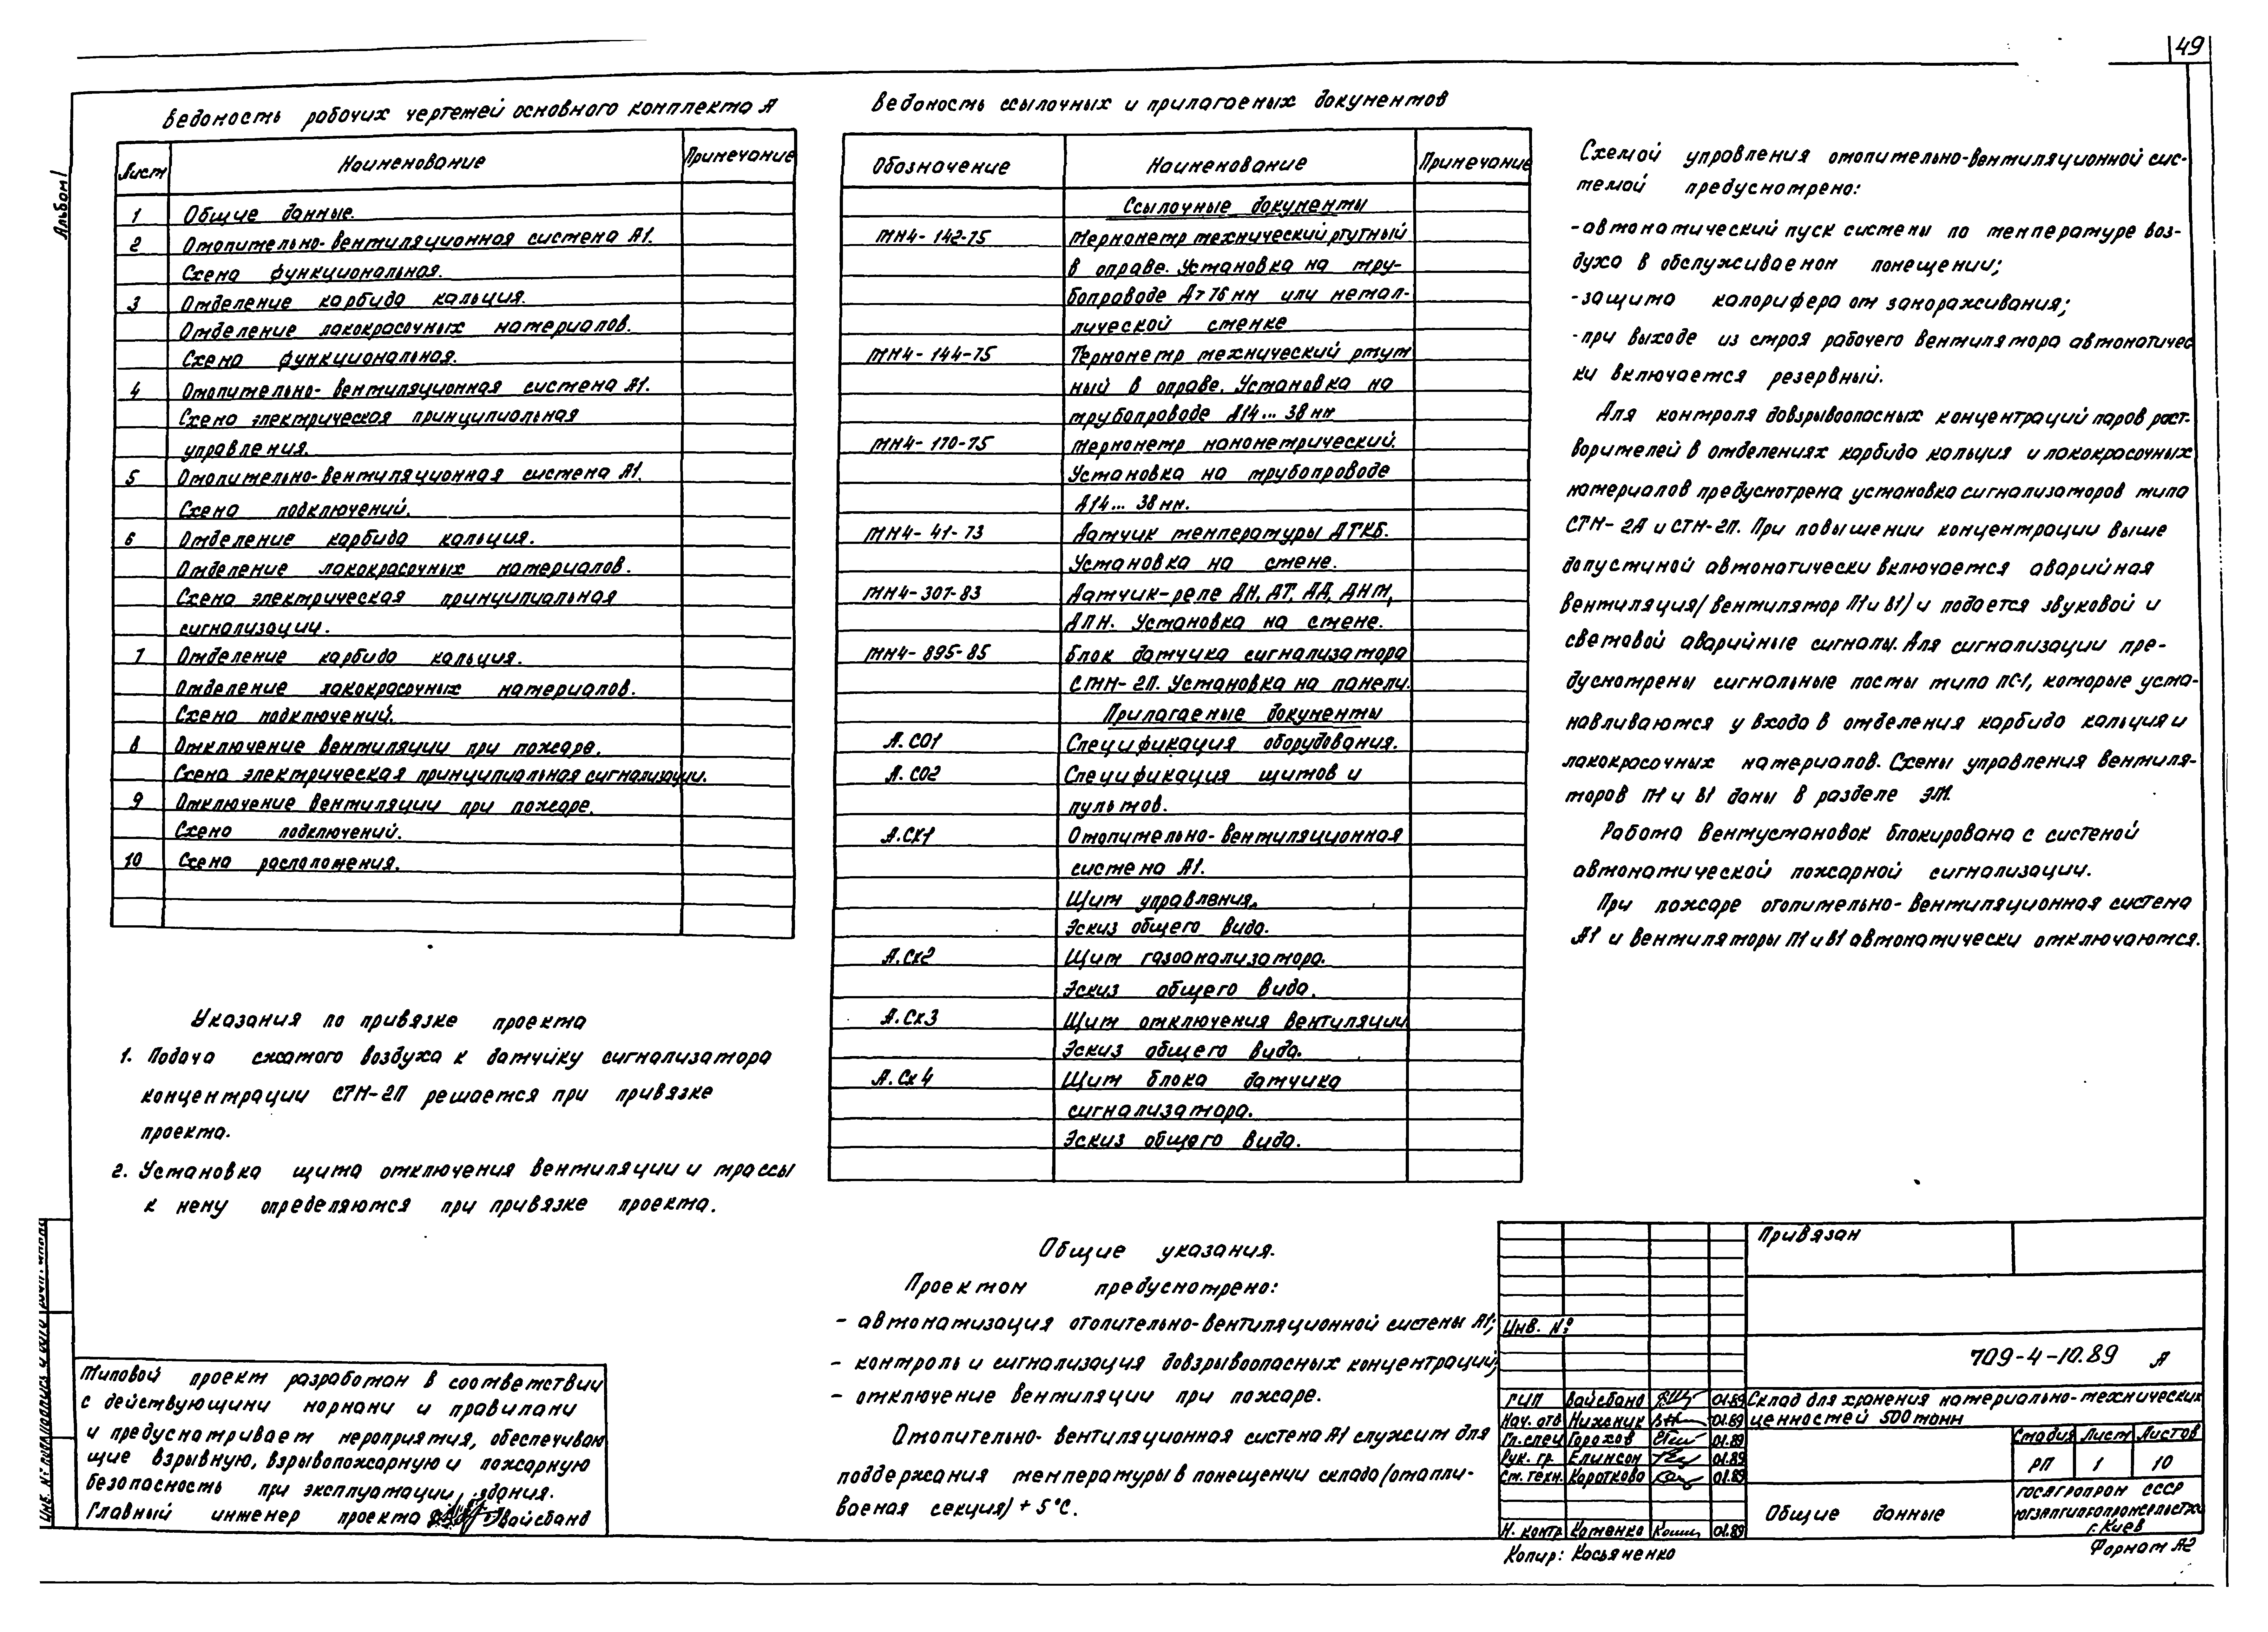 49
Альбом I
Ведомость рабочих чертежей основного комплекта А
Лист Наименование Примечание
1 Общие данные.
2 Отопительно-вентиляционная система А1.
Схема функциональная.
3 Отделение карбида кальция.
Отделение лакокрасочных материалов.
Схема функциональная.
4 Отопительно-вентиляционная система А1.
Схема электрическая принципиальная
управления.
5 Отопительно-вентиляционная система А1.
Схема подключений.
6 Отделение карбида кальция.
Отделение лакокрасочных материалов.
Схема электрическая принципиальная
сигнализации.
7 Отделение карбида кальция.
Отделение лакокрасочных материалов.
Схема подключений.
8 Отключение вентиляции при пожаре.
Схема электрическая принципиальная сигнализации.
9 Отключение вентиляции при пожаре.
Схема подключений.
10 Схема расположения.
Указания по привязке проекта
1. Подача сжатого воздуха к датчику сигнализатора
концентрации СТМ-2П решается при привязке
проекта.
2. Установка щита отключения вентиляции и трассы
к нему определяются при привязке проекта.
Типовой проект разработан в соответствии
с действующими нормами и правилами
и предусматривает мероприятия, обеспечиваю
щие взрывную, взрывопожарную и пожарную
безопасность при эксплуатации здания.
Главный инженер проекта Вайсбанд
Ведомость ссылочных и прилагаемых документов
Обозначение Наименование Примечание
Ссылочные документы
ТМ4-142-75 Термометр технический ртутный
в оправе. Установка на тру-
бопроводе Д>76мм или метал-
лической стенке
ТМ4-144-75 Термометр технический ртут
ный в оправе. Установка на
трубопроводе Д14...38мм
ТМ4-170-75 Термометр манометрический.
Установка на трубопроводе
Д14...38мм.
ТМ4-41-73 Датчик температуры ДТКБ.
Установка на стене.
ТМ4-307-83 Датчик-реле ДН, ДТ, ДД, ДНТ,
ДПН. Установка на стене.
ТМ4-895-85 Блок датчика сигнализатора
СТМ-2П. Установка на панели.
Прилагаемые документы
А.СО1 Спецификация оборудования.
А.СО2 Спецификация щитов и
пультов.
А.СК1 Отопительно-вентиляционная
система А1.
Щит управления.
Эскиз общего вида.
А.СК2 Щит газоанализатора.
Эскиз общего вида.
А.СК3 Щит отключения вентиляции
Эскиз общего вида.
А.СК4 Щит блока датчика
сигнализатора.
Эскиз общего вида.
Общие указания.
Проектом предусмотрено:
- автоматизация отопительно-вентиляционной системы А1;
- контроль и сигнализация довзрывоопасных концентраций;
- отключение вентиляции при пожаре.
Отопительно-вентиляционная система А1 служит для
поддержания температуры в помещении склада (отапли-
ваемая секция) +5°С.
Схемой управления отопительно-вентиляционной сис-
темой предусмотрено:
-автоматический пуск системы по температуре воз-
духа в обслуживаемом помещении;
-защита калорифера от замораживания;
-при выходе из строя рабочего вентилятора автоматичес
ки включается резервный.
Для контроля довзрывоопасных концентраций паров раст-
ворителей в отделениях карбида кальция и лакокрасочных
материалов предусмотрена установка сигнализаторов типа
СТМ-2А и СТМ-2П. При повышении концентрации выше
допустимой автоматически включается аварийная
вентиляция (вентилятор П1 и В1) и подается звуковой и
световой аварийные сигналы. Для сигнализации пре-
дусмотрены сигнальные посты типа ПС-1, которые уста-
навливаются у входа в отделения карбида кальция и
лакокрасочных материалов. Схемы управления вентиля-
торов П1 и В1 даны в разделе ЭМ.
Работа вентустановок блокирована с системой
автоматической пожарной сигнализации.
При пожаре отопительно-вентиляционная система
А1 и вентиляторы П1 и В1 автоматически отключаются.
Привязан
Инв. №
709-4-10.89 А
ГИП Вайсбанд 01.89
Нач. отд 01.89
Гл. спец Горохов 01.89
Рук. гр. Елинсон 01.89
Ст. техн. Короткова 01.89
Н. контр Котенко 01.89
Склад для хранения материально-технических
ценностей 500 тонн
Стадия Лист Листов
РП 1 10
Общие данные
Госагропром СССР
г. Киев
Копир: Касьяненко
Формат А2